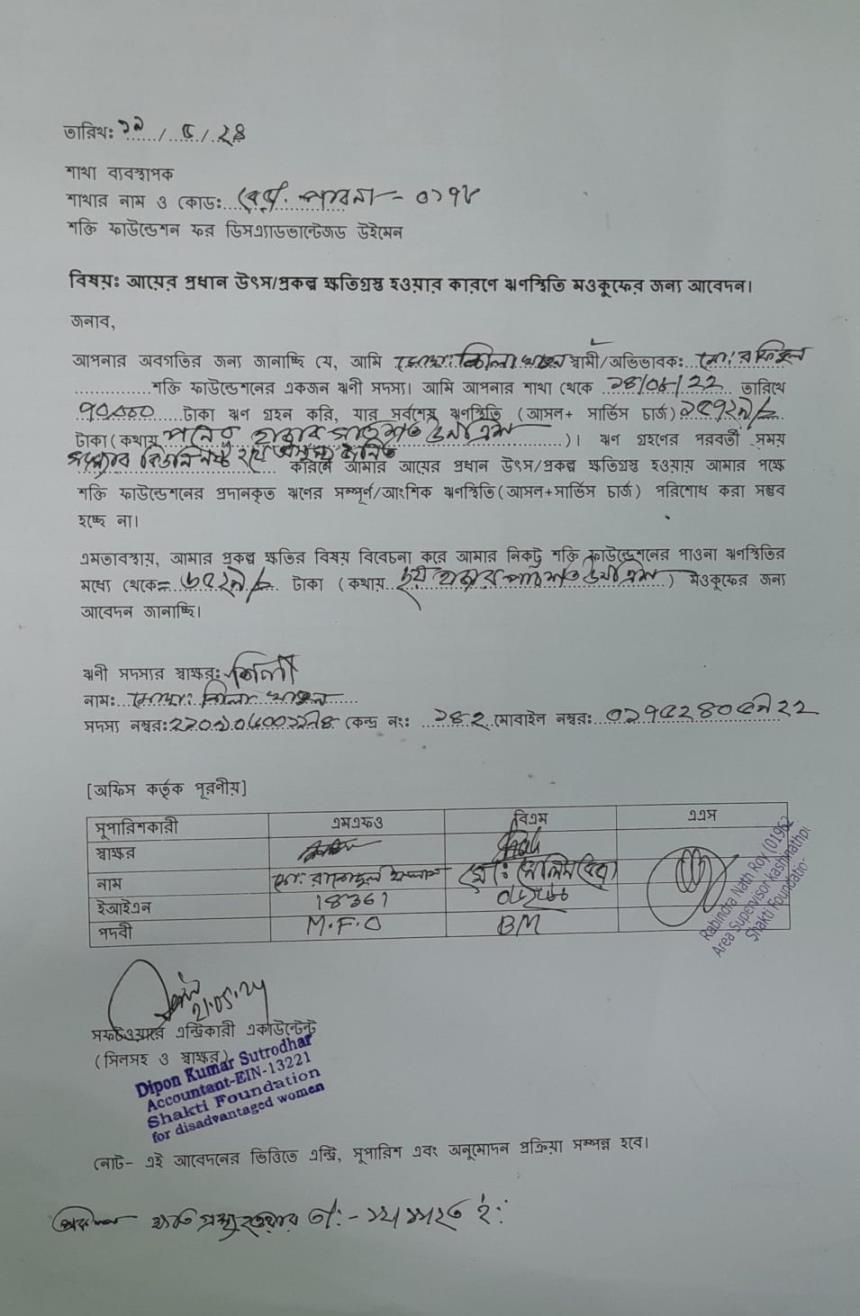 তারিখঃ ১৯ / ৫ / ২৪
শাখা ব্যবস্থাপক
শাখার নাম ও কোডঃ পাবনা - ০১৭৮
শক্তি ফাউন্ডেশন ফর ডিসএ্যাডভান্টেজড উইমেন
বিষয়ঃ আয়ের প্রধান উৎস/প্রকল্প ক্ষতিগ্রস্থ হওয়ার কারণে ঋণস্থিতি মওকুফের জন্য আবেদন।
জনাব,
আপনার অবগতির জন্য জানাচ্ছি যে, আমি মোছাঃ শিলা খাতুন স্বামী/অভিভাবকঃ মোঃ রফিকুল
শক্তি ফাউন্ডেশনের একজন ঋনী সদস্য। আমি আপনার শাখা থেকে তারিখে
৭০০০০ টাকা ঋণ গ্রহন করি, যার সর্বশেষ ঋণস্থিতি (আসল+ সার্ভিস চার্জ) ১৫৭২৯/=
টাকা (কথায় পনের হাজার সাতশত উনত্রিশ)। ঋণ গ্রহণের পরবর্তী সময়
কারণে আমার আয়ের প্রধান উৎস/প্রকল্প ক্ষতিগ্রস্থ হওয়ায় আমার পক্ষে
শক্তি ফাউন্ডেশনের প্রদানকৃত ঋণের সম্পূর্ণ/আংশিক ঋণস্থিতি(আসল+সার্ভিস চার্জ) পরিশোধ করা সম্ভব
হচ্ছে না।
এমতাবস্থায়, আমার প্রকল্প ক্ষতির বিষয় বিবেচনা করে আমার নিকট শক্তি ফাউন্ডেশনের পাওনা ঋণস্থিতির
মধ্যে থেকে= ৬৫২৯/= টাকা (কথায় ছয় হাজার পাচশত উনত্রিশ) মওকুফের জন্য
আবেদন জানাচ্ছি।
ঋনী সদস্যর স্বাক্ষরঃ শিলা
নামঃ মোছাঃ শিলা খাতুন
সদস্য নম্বরঃ কেন্দ্র নংঃ ২৪২ মোবাইল নম্বরঃ
[অফিস কর্তৃক পূরণীয়]
সুপারিশকারী এমএফও বিএম এএস
স্বাক্ষর
নাম
ইআইএন 18361
পদবী M.F.O BM
Rabindra Nath Roy (01962
Area Supervisor
Shakti Foundation
21.05.24
সফটওয়ারে এন্ট্রিকারী একাউন্টেন্ট
(সিলসহ ও স্বাক্ষর)
Dipon Kumar Sutrodhar
Accountant-EIN-13221
Shakti Foundation
for disadvantaged women
নোট- এই আবেদনের ভিত্তিতে এন্ট্রি, সুপারিশ এবং অনুমোদন প্রক্রিয়া সম্পন্ন হবে।